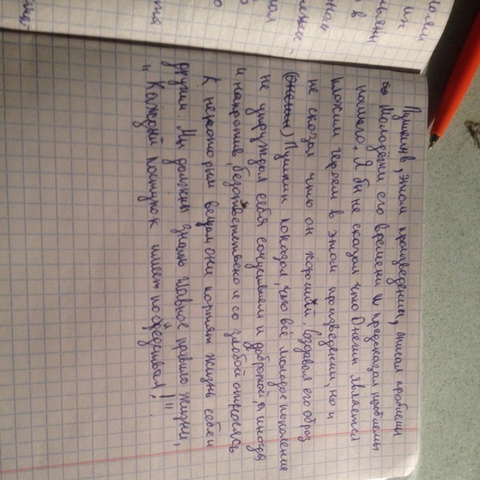 Пушкин в, этом произведении, описал проблемы
Молодёжи его времени и предсказал проблемы
нашего. Я бы не сказал что Онегин является
плохим героем в этом произведении, но и
не сказал что он хороший. Создавая его образ
(Онегин) Пушкин показал, что всё молодое поколение
не утруждал себя сочуствием и добротой, а иногда
и напротив, безответственно и со злобой относясь
к некоторым вещам они портят жизнь себе и
другим. Мы должны знать главное правило жизни,
"Каждый поступок имеет последствия!".